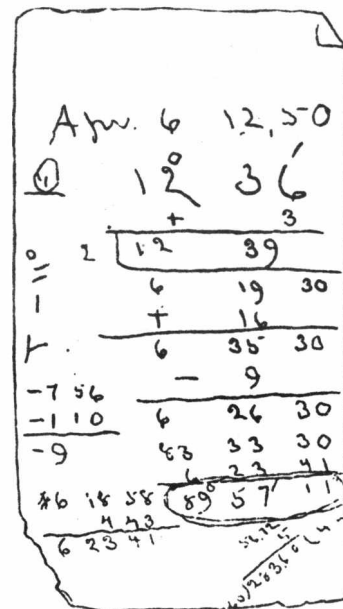 Apr. 6 12,50
12° 36'
+ 3
2 12 39
6 19 30
+ 16
6 35 30
- 9
-7 56
-1 10 6 26 30
-9 83 33 30
6 23 41
6 18 58 89° 57' 11
4 43
6 23 41